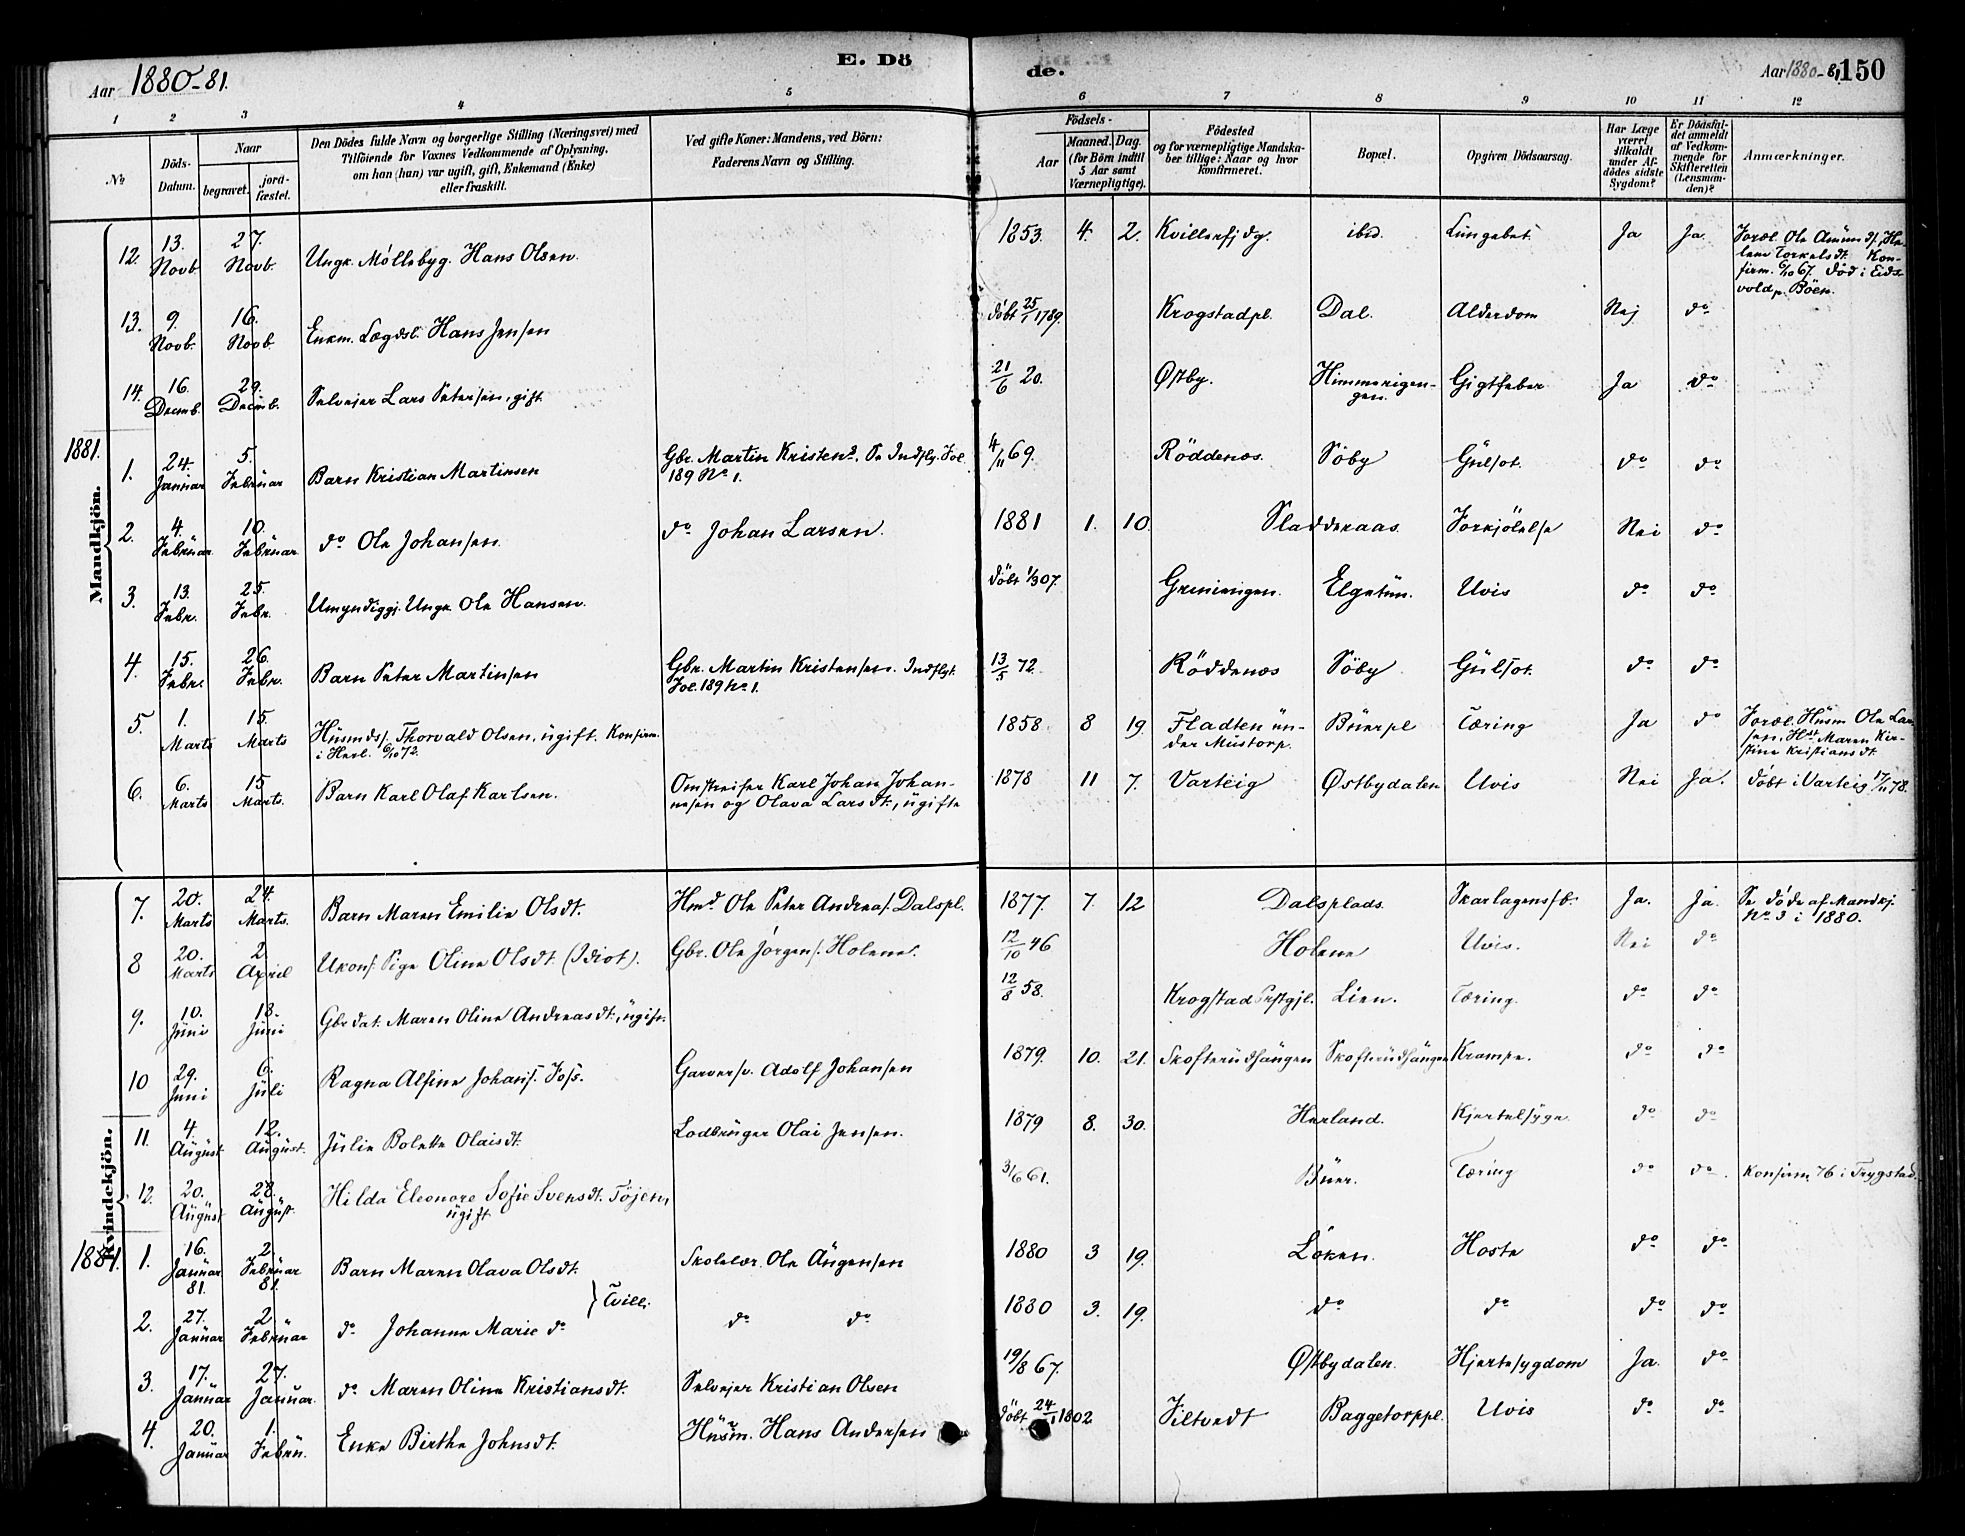 Aar 1880-81. E. Dö de. Aar 1880-81 150
1 2 3 4 5 6 7 8 9 10 11 12
No Döds-Datum. Naar begravet. jordfæstet. Den Dödes fulde Navn og borgerlige Stilling (Næringsvei) med Tilföiende for Voxnes Vedkommende af Oplysning, om han (hun) var ugift, gift, Enkemand (Enke) eller fraskilt. Ved gifte Koner: Mandens, ved Börn: Faderens Navn og Stilling. Födsels- Aar Maaned. Dag. (for Börn indtil 5 Aar samt Værnepligtige). Födested og for værnepligtige Mandskaber tillige: Naar og hvor konfirmeret. Bopæl. Opgiven Dödsaarsag. Har Læge været tilkaldt under Afdödes sidste Sygdom? Er Dödsfaldet anmeldt af Vedkommende for Skifteretten (Lensmanden)? Anmærkninger.
Mandkjön.
12. 13. Novb. 27. Novb. Ungk. Møllebyg. Hans Olsen. 1853. 4. 2. ibid. Lungebet. Ja Ja Foræl. Ole Amunds., Helene Torkelsdt. Konfirm. 6/10 67. Död i Eidsvold p. Böen.
13. 9. Novb. 16. Novb. Enkm. Lægdsl. Hans Jensen döbt 25/1 1789. Krogstadpl. Dal. Alderdom Nej do
14. 16. Decmb. 29. Decmb. Selvejer Lars Petersen, gift. 21/6 20. Østby. Himmerigengen. Gigtfeber Ja do
1881.
1. 24. Januar 5. Februar Barn Kristian Martinsen Gbr. Martin Kristens. Se Indflg. Fol. 189 No 1. 4/11 69. Röddenæs. Söby Gulsot. do do
2. 4. Februar 10. Februar do Ole Johansen. do Johan Larsen. 1881 1. 10. Sladderaas. Forkjölelse Nei do
3. 13. Febr. 25. Febr. Umyndiggj. Ungk. Ole Hansen. döbt 1/3 07. Greningen. Elgetun. Uvis do do
4. 15. Febr. 26. Febr. Barn Peter Martinsen Gbr. Martin Kristensen. Indflyt. Fol. 189 No 1. 13/5 72. Röddenæs Söby Gulsot. do do
5. 1. Marts 15. Marts Husmds. Thorvald Olsen, ugift. Konfirm. i Herl. 6/10 72. 1858. 8 19. Fladten under Mustorp. Buerpl Tæring Ja do Foræl. Husm Ole Larsen, Hst. Maren Kirstine Kristiansdt.
6. 6. Marts 15 Marts. Barn Karl Olaf Karlsen. Omstreifer Karl Johan Johannesen og Olava Larsdt., ugifte 1878 11 7. Varteig Østbydalen Uvis Nei Ja. döbt i Varteig 17/11 78.
Kvindekjön.
7. 20. Marts 24. Marts. Barn Maren Emilie Olsdt. Hmd Ole Peter Andreas. Dalspl. 1877. 7. 12 Dalsplads. Skarlagensfb. Ja. Ja. Se döde af Mandkj. No 3 i 1880.
8 20. Marts 2 April Ukonf. Pige Oline Olsdt. (Idiot). Gbr. Ole Jörgens. Holene. 12/10 46 Holene Uvis. Nei do
9. 10. Juni 18. Juni Gbrdat. Maren Oline Andreasdt., ugift. 12/8 58. Krogstad Prstgjl. Lien. Tæring. do do
10 29. Juni 6. Juli Ragna Alfine Johans. Garversv. Adolf Johansen 1879. 10. 21. Skofterudhängen Skofterudhängen Krampe. do do
11. 4. August 12. August. Julie Bolette Olaisdt. Lodbruger Olai Jensen. 1879 8. 30. Herland. Kjertelsyge. do do
12. 20. August 28. August. Hilda Eleonore Sofie Svensdt. Töjen, ugift 3/6 61. Buer. Tæring do do. Konfirm. 76 i Trygstad.
1881. 1. 16. Januar 81. 2. Februar 81. Barn Maren Olava Olsdt. Skolelær. Ole Augensen 1880 3 19. Löken. Hoste do do
} Tvill.
2. 27. Januar 2. Februar do Johanne Marie do do do 1880 3. 19. do do do do
3. 17. Januar 27. Januar. do Maren Oline Kristiansdt. Selvejer Kristian Olsen 19/8 67. Østbydalen. Hjertesygdom Ja. do
4. 20. Januar 1. Februr. Enke Birthe Johnsdt. Husm. Hans Andersen döbt 24/1 1802 Filtvedt Baggetorppl. Uvis do do